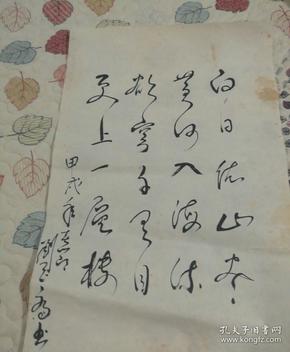 白日依山尽
黄河入海流
欲穷千里目
更上一层楼
甲戌年
书
孔夫子旧书网